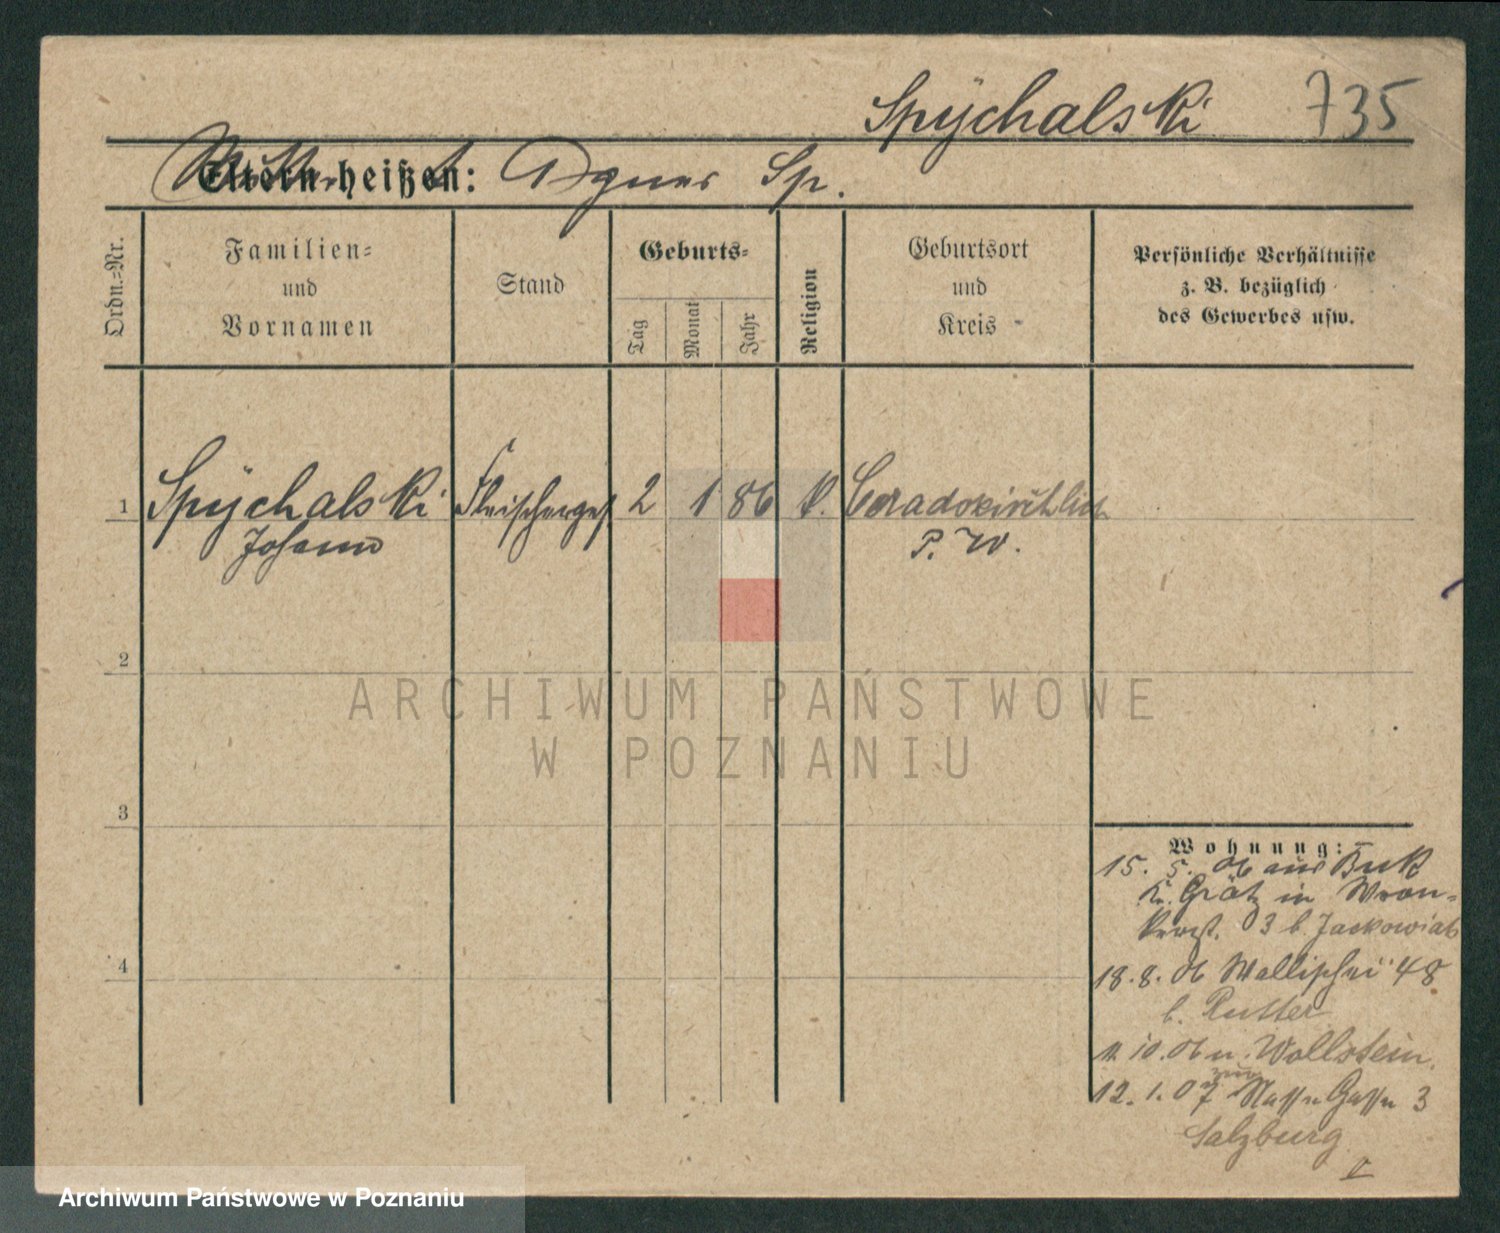 Spÿchalski 735
Eltern heißen: Agnes Sp.
Ordn.=Nr.
Familien=
und
Vornamen
Stand
Geburts=
Tag
Monat
Jahr
Religion
Geburtsort
und
Kreis
Persönliche Verhältnisse
z. B. bezüglich
des Gewerbes usw.
1 Spÿchalski Fleischerges 2 1 86 k.
Johann P. W.
2
3
4
Wohnung:
15. 5. 06 aus Buk
Kr. Grätz in Wron-
kerst. 3 b. Jackowiak
18. 8. 06 Wallischei 48
b. Rutter
11. 10. 06 n. Wollstein.
12. 1. 07 Nasse Gasse 3
Salzburg
ARCHIWUM PAŃSTWOWE
W POZNANIU
Archiwum Państwowe w Poznaniu